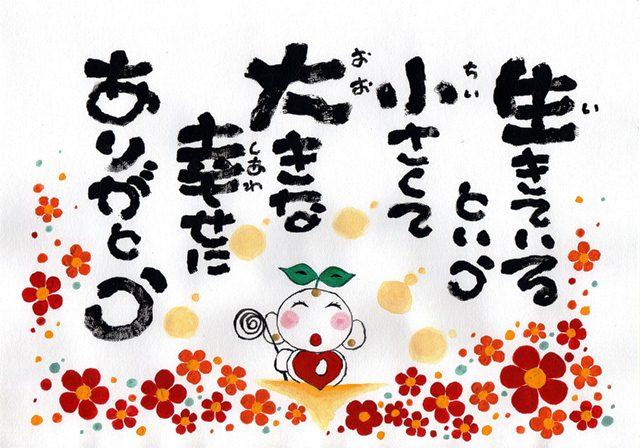 い
生きている
という
ちい
小さくて
おお
大きな
しあわ
幸せに
ありがとう